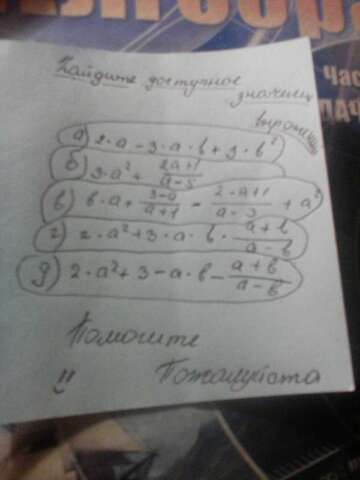 АЛГЕБРА
Час
ДАЧ
Найдите доступное
значения
выражения
а) 2·a-3·a·b+3·b²
б) 3·a²+ (2a+1)/(a-5)
в) b·a+ (3-a)/(a+1) - (2·a+1)/(a-3) + a²
г) 2·a²+3·a·b· (a+b)/(a-b)
д) 2·a²+3-a·b- (a+b)/(a-b)
Помогите
!! Пожалуйста